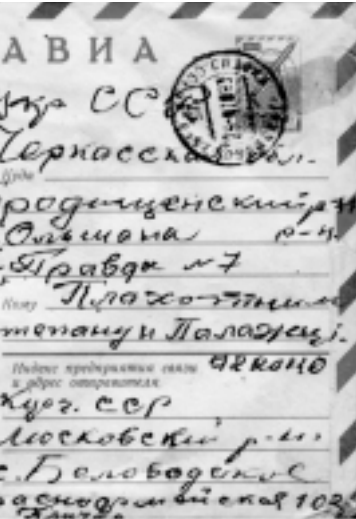 АВИА
укр ССР
Черкасская обл.
Куда
родищенский р-н
Ольшана р-н.
Правда №7
Кому Плахотным
тепану и Палажці.
Индекс предприятия связи
и адрес отправителя
Кирг. ССР
Московский р-н.
с. Беловодское
расноармейская 102